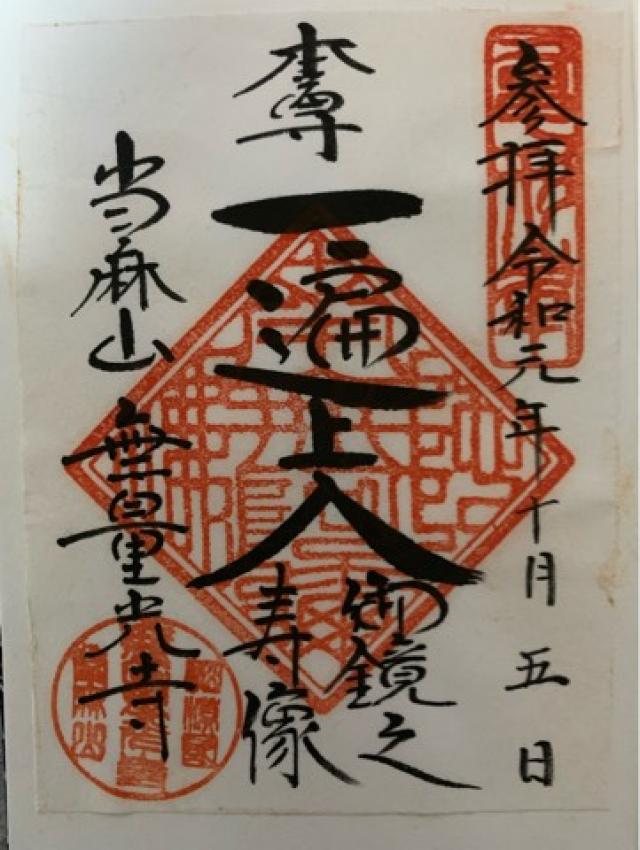 参拝 令和元年十月五日
本尊
一遍上人
御鏡之
寿像
当麻山 無量光寺